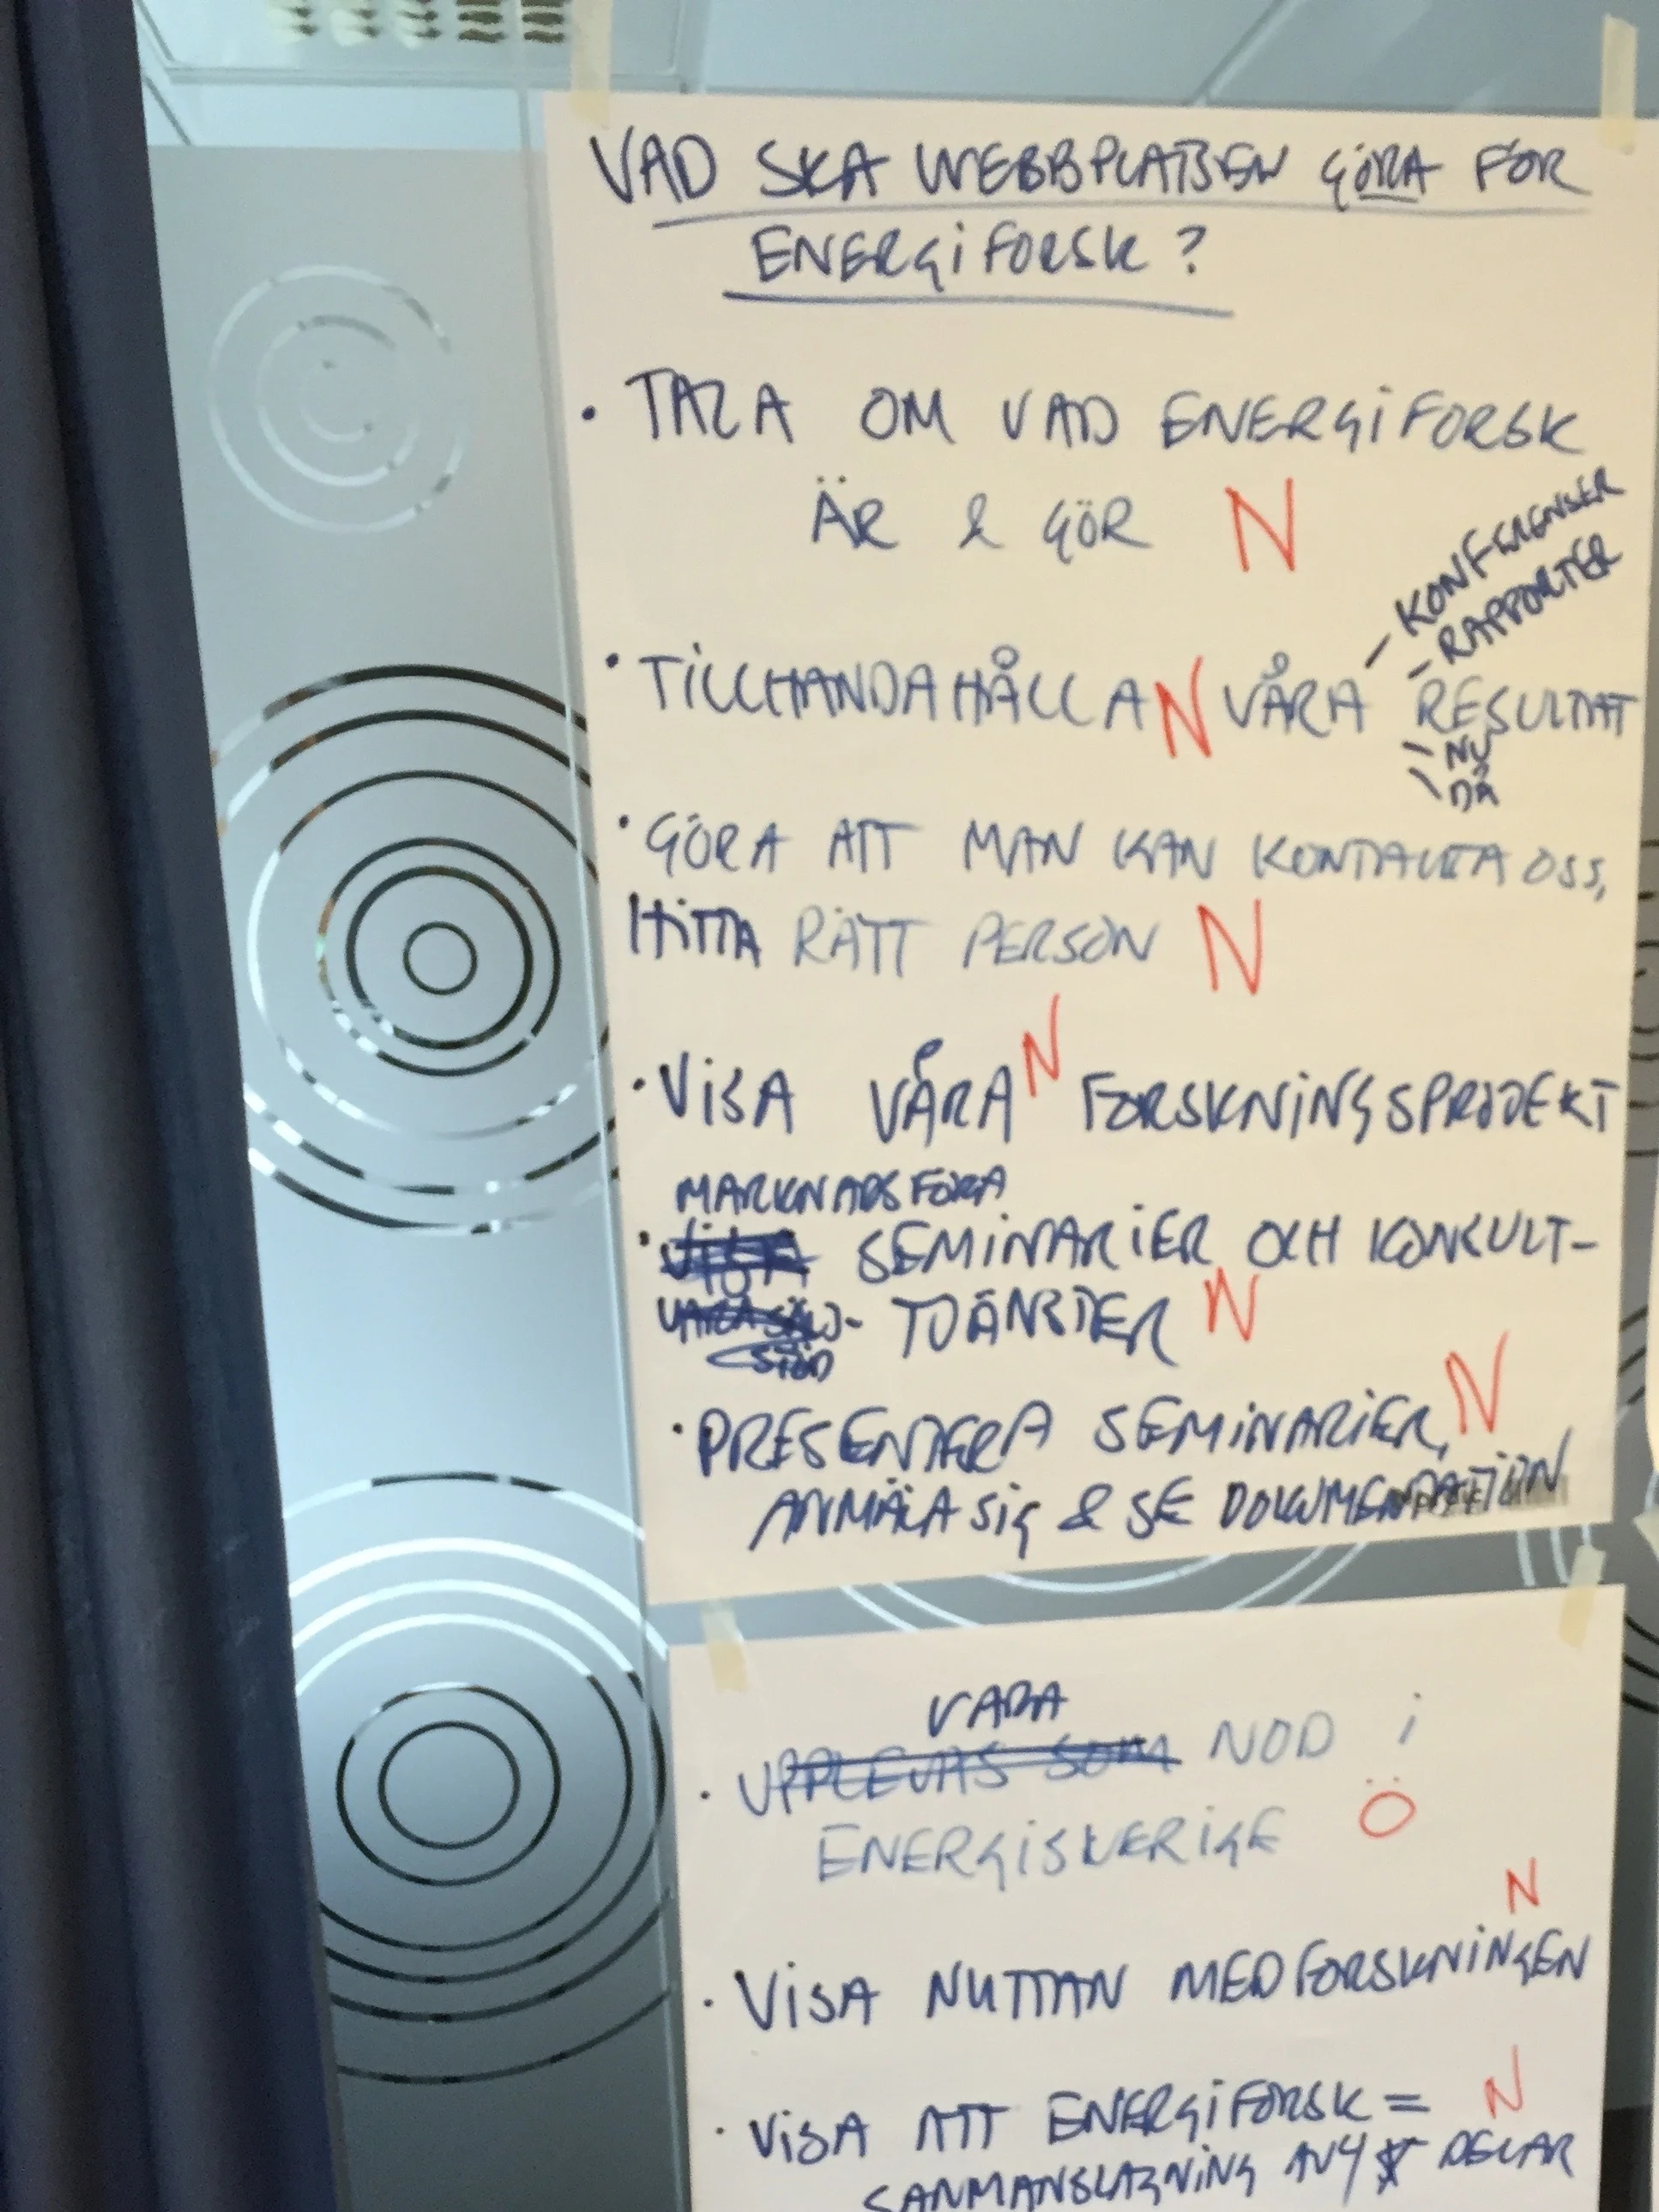 VAD SKA WEBBPLATSEN GÖRA FÖR
ENERGIFORSK?
• TALA OM VAD ENERGIFORSK
ÄR & GÖR N
- KONFERENSER
- RAPPORTER
• TILLHANDAHÅLLA N VÅRA RESULTAT
- NU
- DÅ
• GÖRA ATT MAN KAN KONTAKTA OSS,
HITTA RÄTT PERSON N
• VISA VÅRA N FORSKNINGSPROJEKT
MARKNADSFÖRA
• VISA SEMINARIER OCH KONSULT-
TJÄNSTER N
STÖD
• PRESENTERA SEMINARIER, N
ANMÄLA SIG & SE DOKUMENTATION
VARA
• UPPLEVAS SOM NOD i
ENERGISVERIGE Ö
N
• VISA NYTTAN MED FORSKNINGEN
• VISA ATT ENERGIFORSK = N
SANMANSLAGNING AV 4 DELAR